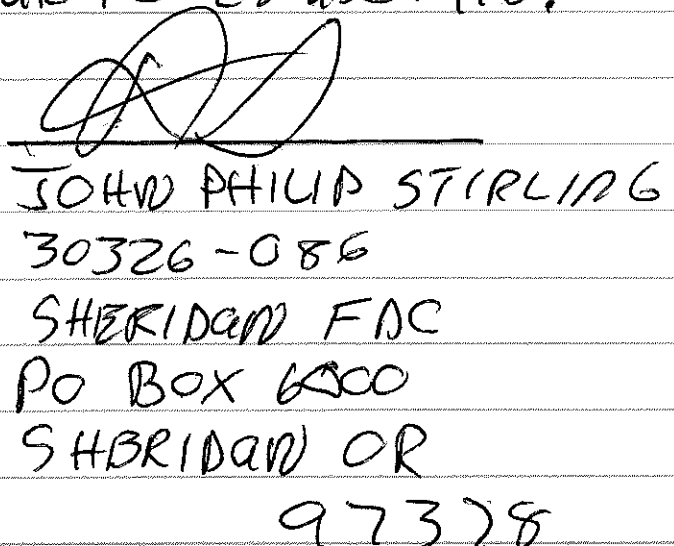 JOHN PHILIP STIRLING
30326-086
SHERIDAN FDC
PO BOX 6000
SHERIDAN OR
97378